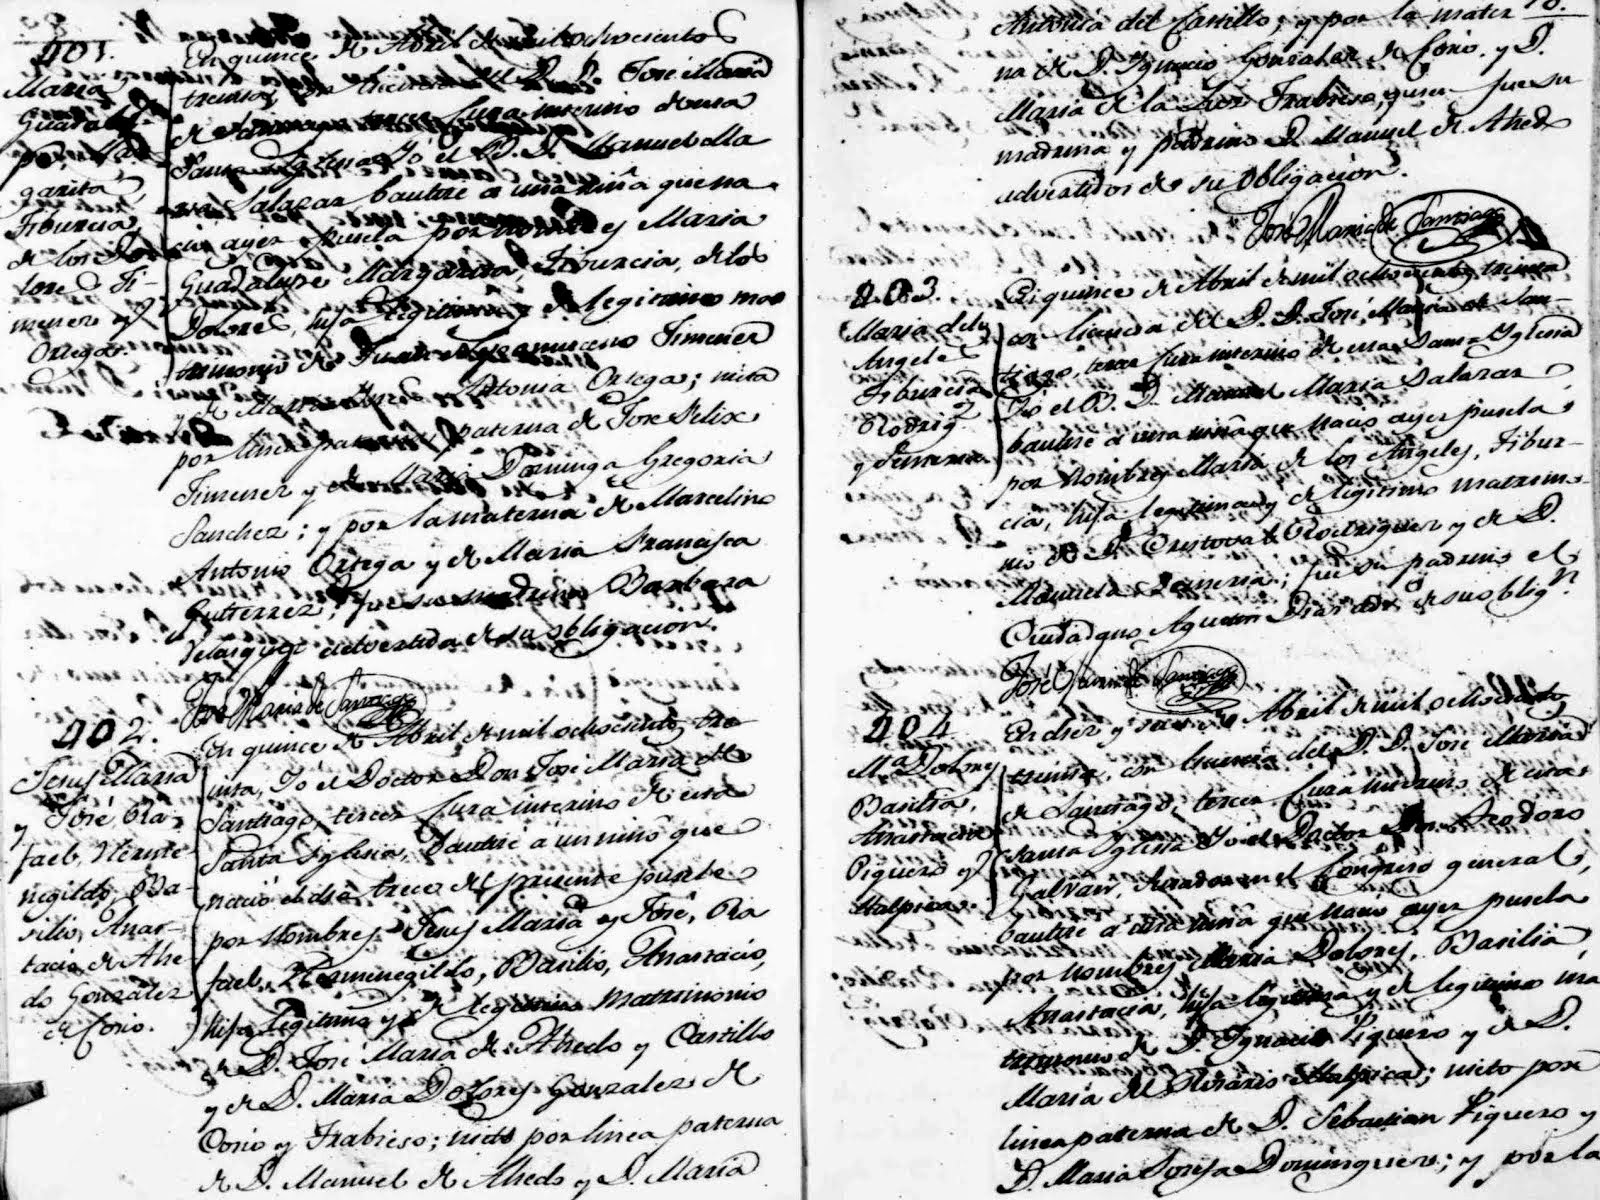 401.
Maria
Guadalu-
pe, Mar-
garita,
Tiburcia,
de los Do-
lores Ji-
menez y
Ortega.
En quince de Abril de mil ochocientos
treinta, con licencia del D. D. José Maria
de Santiago, tercer Cura interino de esta
Santa Yglesia, Yó el B. D. Manuel Ma
ria Salazar bautizé á una niña que na
ció ayer, pusela por nombres Maria
Guadalupe Margarita, Tiburcia, de los
Dolores, hija legitima y de legitimo ma
trimonio de Juan Nepomuceno Jimenez
y de Maria Antonia Ortega; nieta
por linea paterna de José Felix
Jimenez y de Maria Dominga Gregoria
Sanchez; y por la materna de Marcelino
Antonio Ortega y de Maria Francisca
Gutierrez; fue su madrina Barbara
Velasquez advertida de su obligacion.
José Maria de Santiago
402.
Jesus Maria
y José, Ra-
fael, Herme-
negildo, Ba-
silio, Anas-
tacio de Ahe-
do Gonzalez
de Cosio.
En quince de Abril de mil ochocientos tre
inta, Yó el Doctor Don José Maria de
Santiago, tercer Cura interino de esta
Santa Yglesia, bautizé á un niño que
nació el dia trece del presente pusele
por nombres Jesus Maria y José, Ra
fael, Hermenegildo, Basilio, Anastacio,
hijo legitimo y de legitimo matrimonio
de D. José Maria de Ahedo y Castillo
y de D. Maria Dolores Gonzalez de
Cosio y Frabieso; nieto por linea paterna
de D. Manuel de Ahedo y D. Maria
Antonia del Castillo; y por la mater
na de D. Ygnacio Gonzalez de Cosio y D.
Maria de la Luz Frabieso, quien fue su
madrina y padrino D. Manuel de Ahedo
advertidos de su obligacion.
José Maria de Santiago
403.
Maria de los
Angeles
Tiburcia
Rodrig
y
En quince de Abril de mil ochocientos treinta
con licencia del D. D. José Maria de San-
tiago, tercer Cura interino de esta Santa Yglesia
Yó el B. D. Manuel Maria Salazar
bautizé á una niña que nació ayer pusela
por nombres Maria de los Angeles, Tibur-
cia, hija legitima y de legitimo matrimo-
nio de D. Cristoval Rodriguez y de D.
Manuela; fue su padrino el
Ciudadano Agustin Dias adv.º de su oblig.n
José Maria de Santiago
404
M.a Dolores
Basilia,
Anastacia
Piquero y
Malpica.
En diez y seis de Abril de mil ochociento
treinta, con licencia del D. D. José Maria
de Santiago, tercer Cura interino de esta
Santa Yglesia Yo el Doctor Don Teodoro
Galvan, Senador en el Congreso general,
bautizé á una niña que nació ayer pusela
por nombres Maria Dolores, Basilia
Anastacia, hija legitima y de legitimo ma
trimonio de D. Ygnacio Piquero y de D.
Maria del Rosario Malpica; nieta por
linea paterna de D. Sebastian Piquero y
D. Maria Josefa Dominguez; y por la